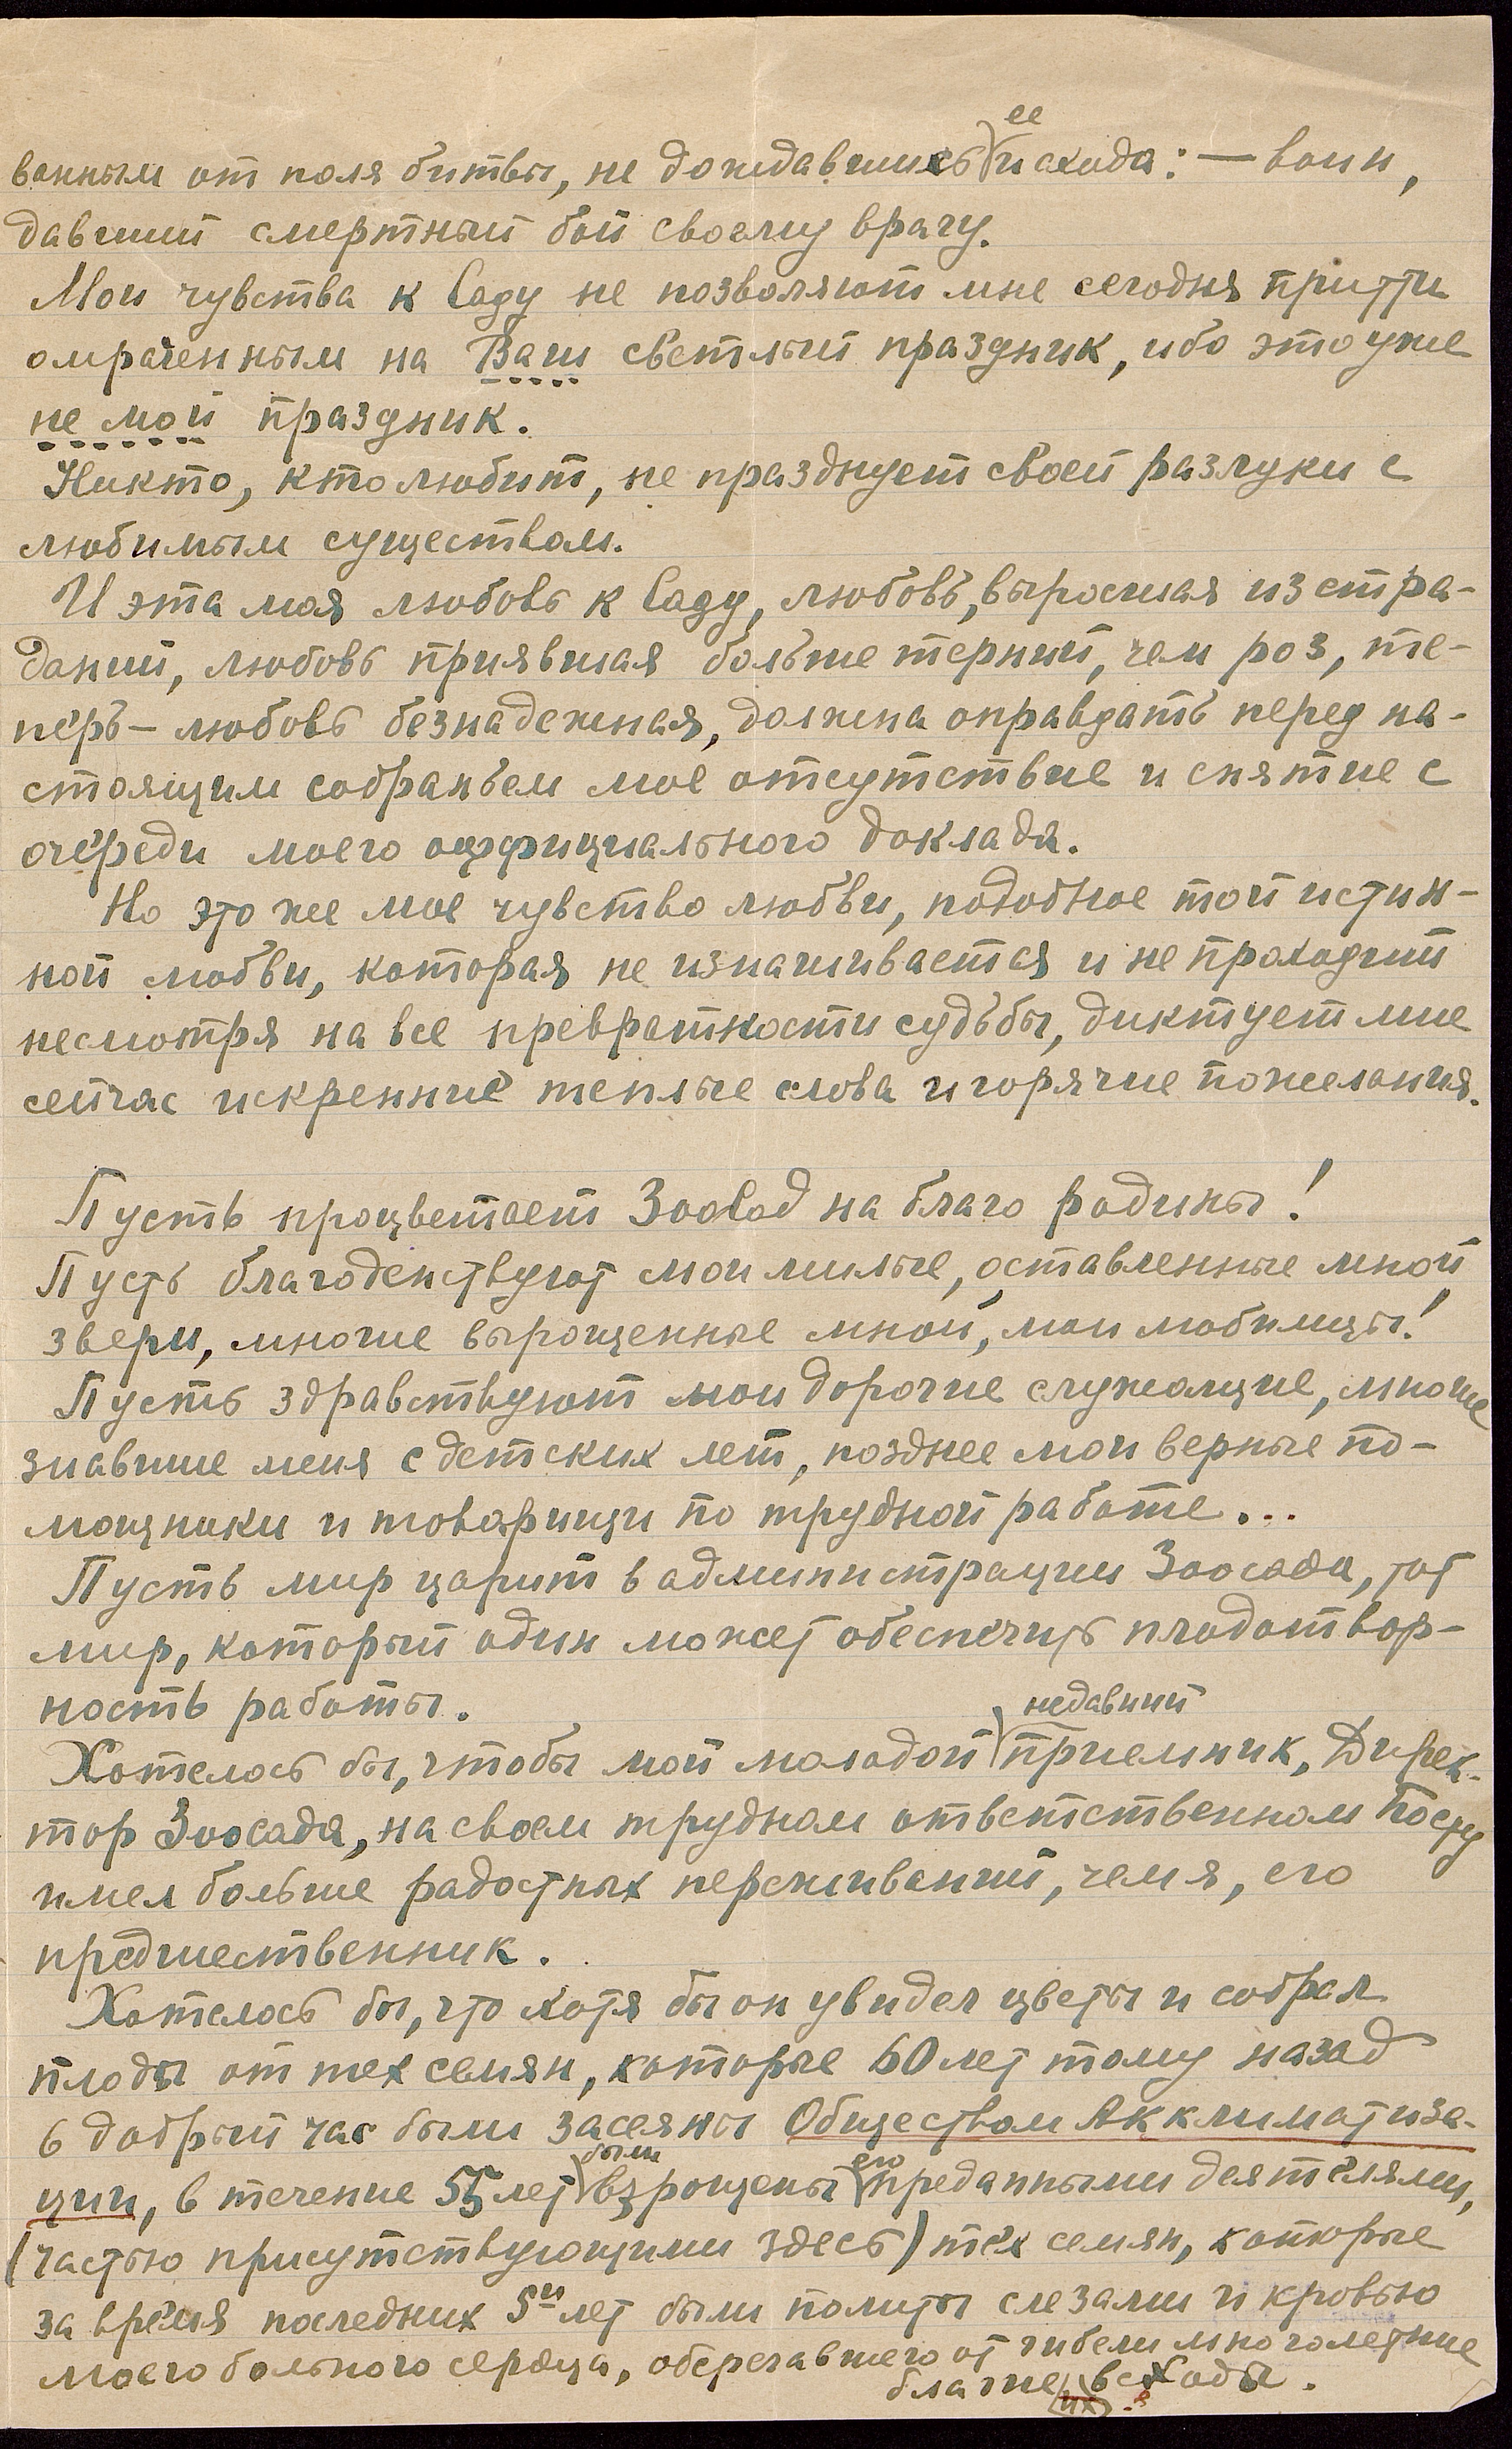 ванным от поля битвы, не дождавшись ее исхода: — воин,
давший смертный бой своему врагу.
Мои чувства к Саду не позволяют мне сегодня притти
омраченным на Ваш светлый праздник, ибо это уже
не мой праздник.
Никто, кто любит, не празднует своей разлуки с
любимым существом.
И эта моя любовь к Саду, любовь, выросшая из стра-
даний, любовь приявшая больше терний, чем роз, те-
перь — любовь безнадежная, должна оправдать перед на-
стоящим собраньем мое отсутствие и снятие с
очереди моего оффициального доклада.
Но это же мое чувство любви, подобное той истин-
ной любви, которая не изнашивается и не проходит
несмотря на все превратности судьбы, диктует мне
сейчас искренние теплые слова и горячие пожелания.
Пусть процветает ЗооСад на благо родины!
Пусть благоденствуют мои милые, оставленные мной
звери, многие вырощенные мной, мои любимцы!
Пусть здравствуют мои дорогие служащие, многие
знавшие меня с детских лет, позднее мои верные по-
мощники и товарищи по трудной работе...
Пусть мир царит в администрации Зоосада, тот
мир, который один может обеспечить плодотвор-
ность работы.
Хотелось бы, чтобы мой молодой недавний приемник, Дирек-
тор Зоосада, на своем трудном ответственном посту
имел больше радостных переживаний, чем я, его
предшественник.
Хотелось бы, что хотя бы он увидел цветы и собрал
плоды от тех семян, которые 60 лет тому назад
в добрый час были засеяны Обществом Акклиматиза-
ции, в течение 55 лет были взрощены его преданными деятелями,
(частью присутствующими здесь) тех семян, которые
за время последних 5ти лет были политы слезами и кровью
моего больного сердца, оберегавшего от гибели многолетние
благие (их) всходы.